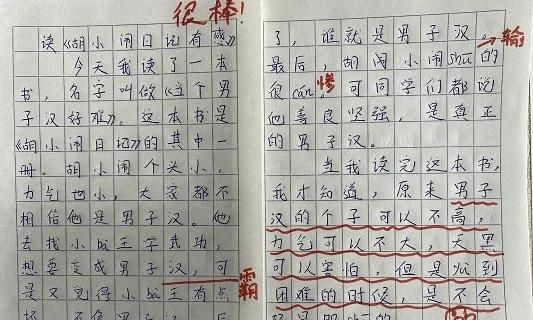 很棒!
读《胡小闹日记有感》
今天我读了一本
书，名字叫做《当个男
子汉好难》。这本书是
《胡小闹日记》的其中一
册。胡小闹个头小，
力气也小，大家都不
相信他是男子汉。他
去找小bà王学武功，
想要变成男子汉，可
是又觉得小bà王有点 霸
了，谁就是男子汉。
最后，胡闹小闹shū的 输
很cǎn 惨 可同学们都说
他善良坚强，是真正
的男子汉。
当我读完这本书，
我才知道，原来男子
汉的个子可以不高，
力气可以不大，天黑
可以害怕，但是yù到
困难的时候，是不会